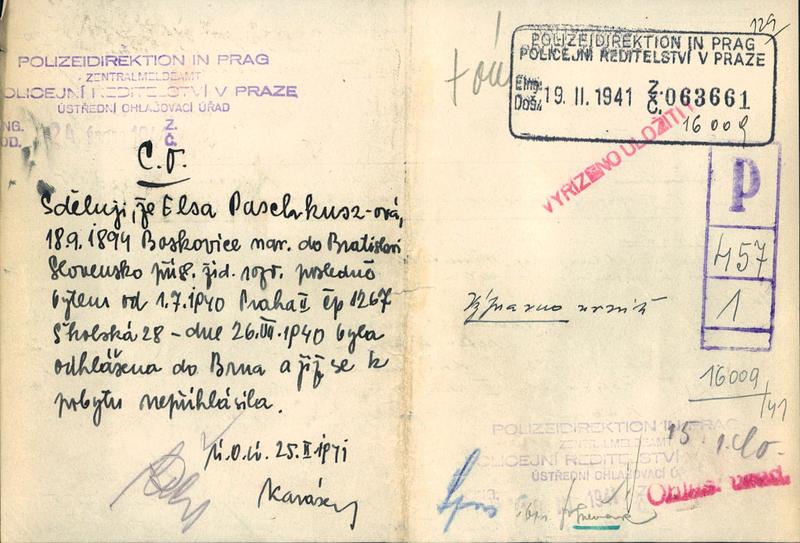 POLIZEIDIREKTION IN PRAG
ZENTRALMELDEAMT
POLICEJNÍ ŘEDITELSTVÍ V PRAZE
ÚSTŘEDNÍ OHLAŠOVACÍ ÚŘAD
Z.
Č.
Č.O.
Sděluji, že Elsa Paschkusz-ová,
18.9.1894 Boskovice nar. do Bratislavi
Slovensko přísl. žid. rozv. posledně
bytem od 1.7.1940 Praha II čp 1267
Školská 28 – dne 26.VII.1940 byla
odhlášena do Brna a již se k
pobytu nepřihlásila.
25.II.1941
129
POLIZEIDIREKTION IN PRAG
POLICEJNÍ ŘEDITELSTVÍ V PRAZE
Eing.
Došl.
19. II. 1941
Z.
Č.
063661
16009
VYŘÍZENO ULOŽITI!
P
457
1
16009
/41
POLIZEIDIREKTION IN PRAG
ZENTRALMELDEAMT
POLICEJNÍ ŘEDITELSTVÍ V
ÚSTŘEDNÍ OHLAŠOVACÍ ÚŘAD
Z.
Č.